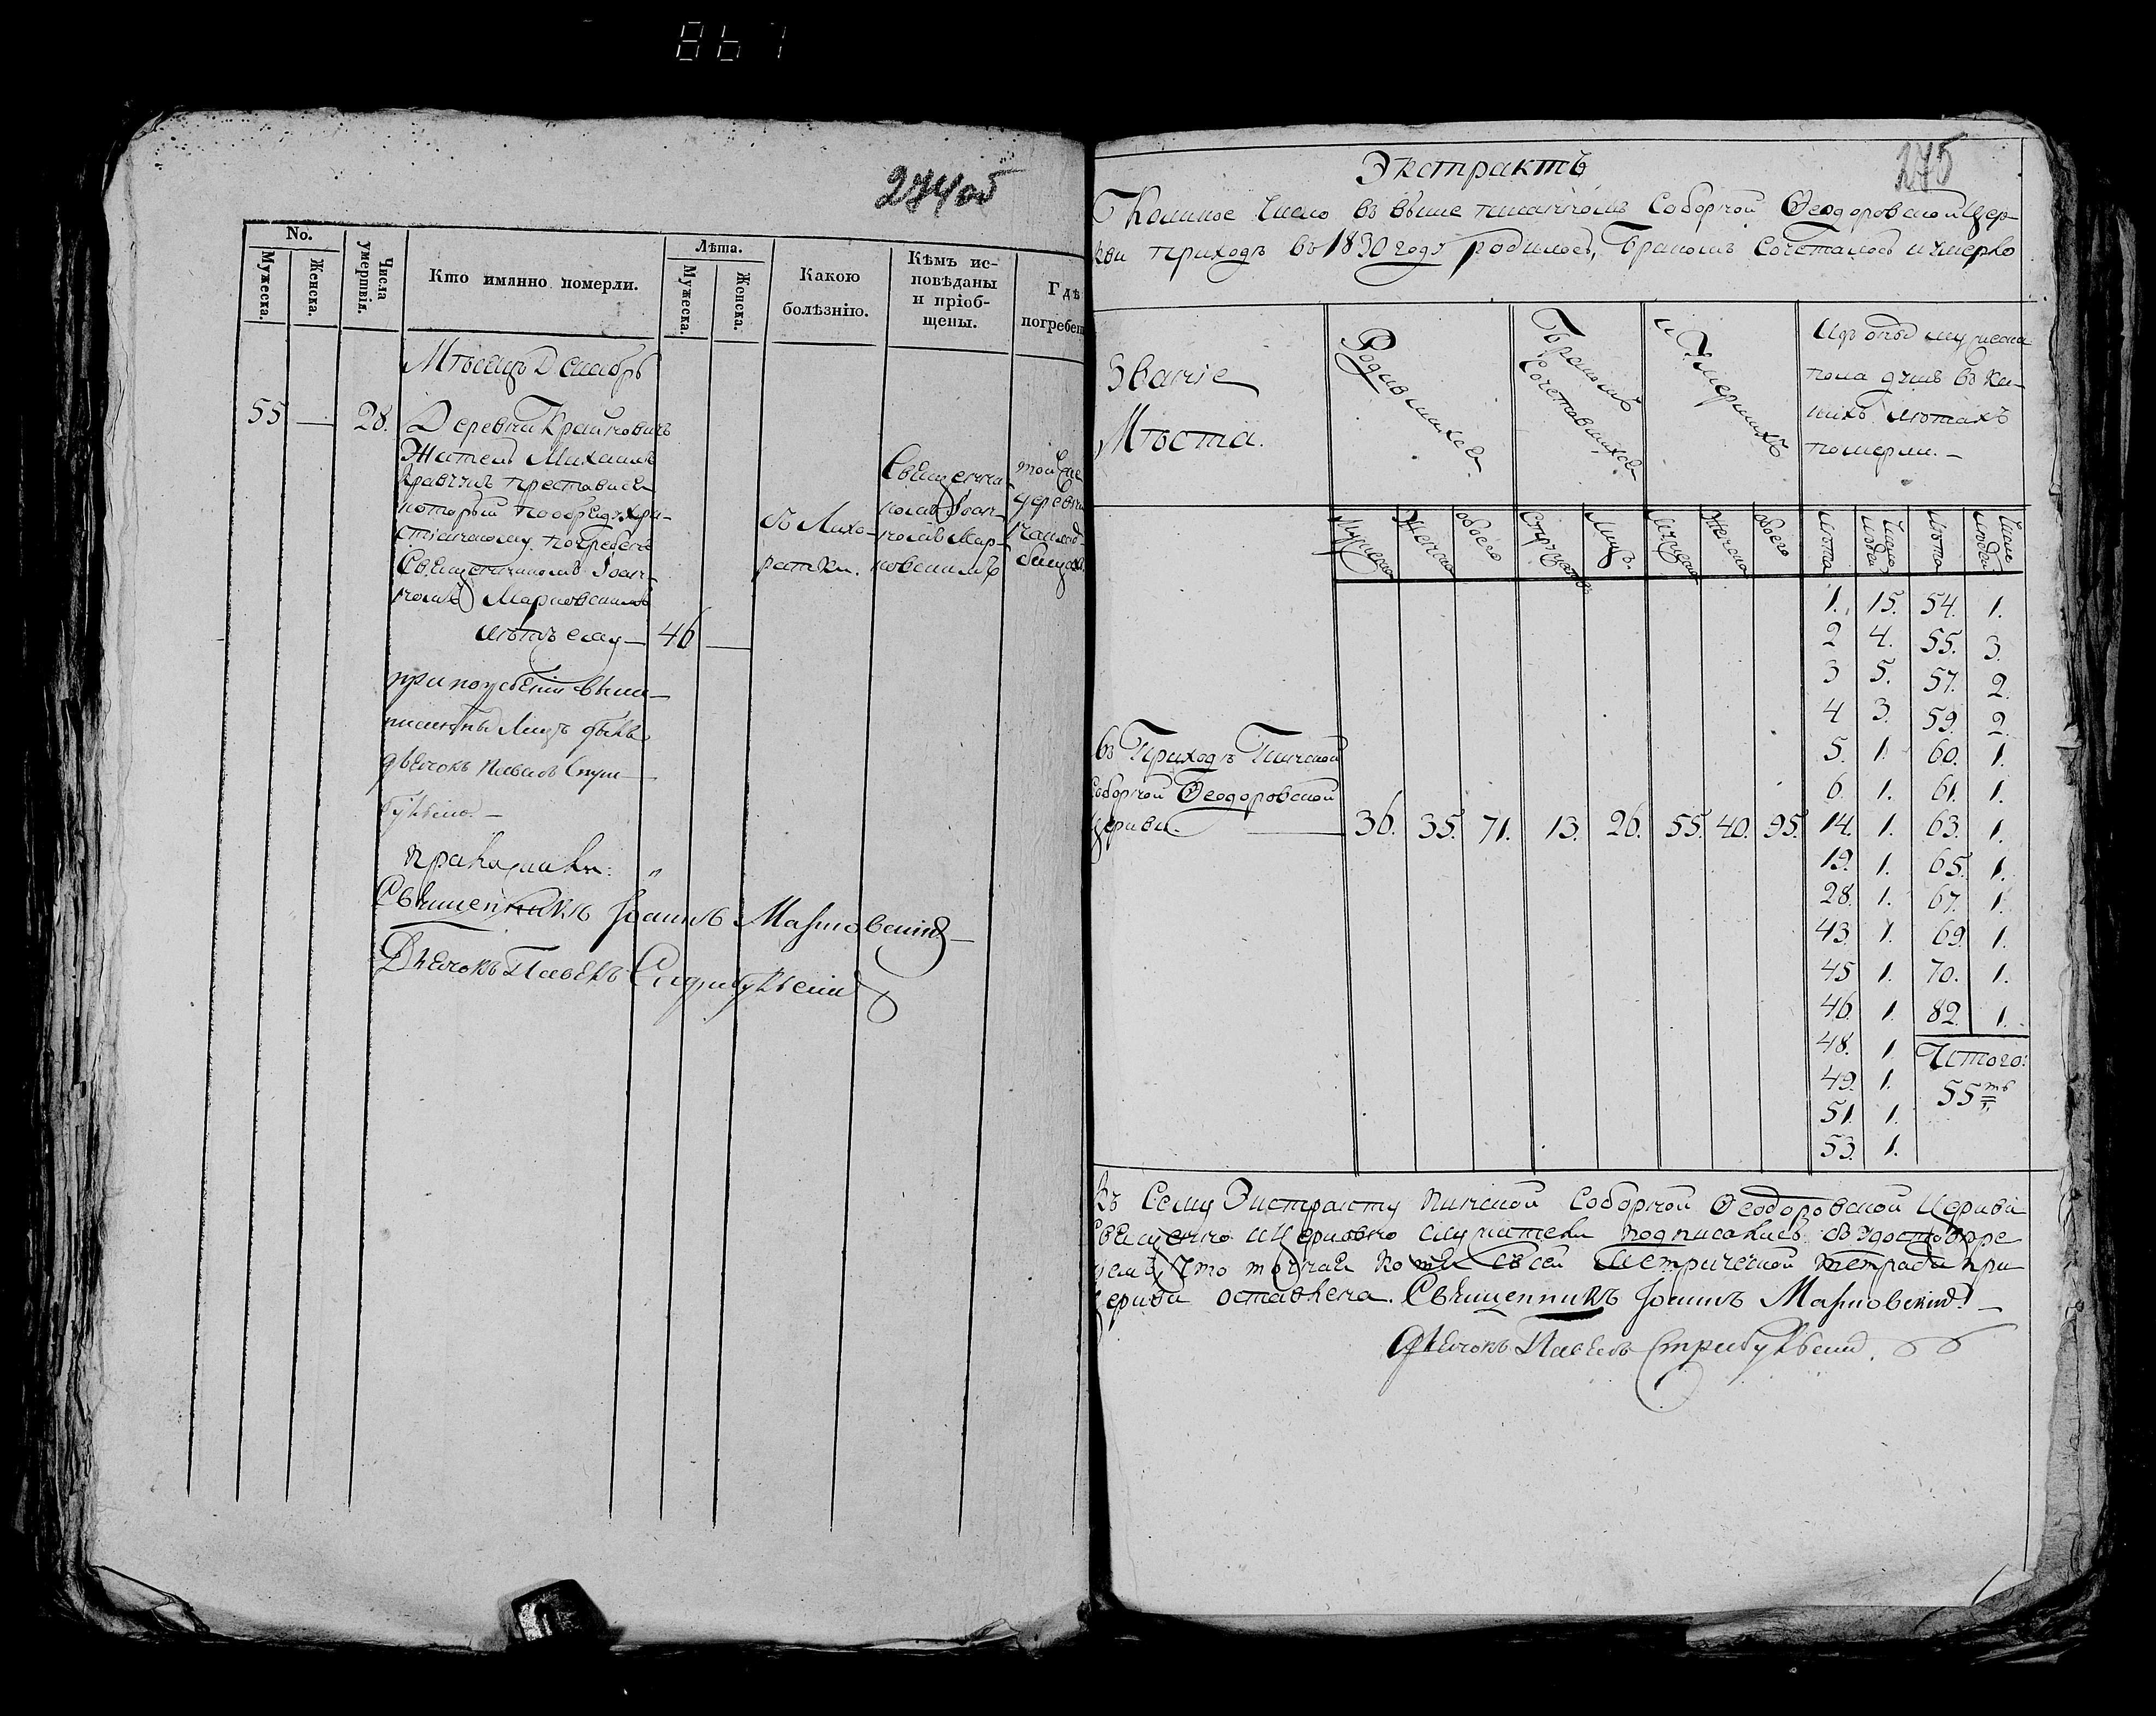 867
274об
No.
Мужеска.
Женска.
Числа умертвія.
Кто имянно померли.
Лѣта.
Мужеска.
Женска.
Какою
болѣзнію.
Кѣмъ ис-
повѣданы
и пріоб-
щены.
Гдѣ
погребен
Мѣсяцъ Декабрь
55 — 28. Деревни Крайновичъ
Житель Михаилъ
Кравчукъ преставися
который по обряду хри-
стіанскому погребенъ
Священникомъ Іоан-
номъ Марковскимъ
лѣтъ ему — 46 —
въ Лихо-
радки.
Священни-
комъ Іоан-
номъ Мар-
ковскимъ
той же
деревни
на клад-
бищахъ
при погребеніи выше-
писанныхъ Лицъ былъ
дьячокъ Павелъ Стри-
бульскій —
Священникъ Іоаннъ Марковскій —
Дьячокъ Павелъ Стрибульскій
275
Экстрактъ
Коликое число въ выше писанномъ Соборной Ѳеодоровской Цер-
кви приходѣ въ 1830 году родилось, бракомъ сочеталось и умерло
Званіе
Мѣста.
Родившихся
Бракомъ
Сочетавшихся
и Умершихъ
Изъ оныхъ мужеска
пола душъ въ ка-
кихъ лѣтахъ
померли. —
Мужеска
Женска
обоего
Супружествъ
Лицъ.
Мужеска
Женска
обоего
лѣта
Число людей
лѣта
Число людей
въ Приходѣ Пинской
Соборной Ѳеодоровской
Церкви. — 36. 35. 71. 13. 26. 55. 40. 95.
1. 15. 54. 1.
2 4. 55. 3.
3 5. 57. 2.
4 3. 59. 2.
5. 1. 60. 1.
6. 1. 61. 1.
14. 1. 63. 1.
19. 1. 65. 1.
28. 1. 67. 1.
43. 1. 69. 1.
45 1. 70. 1.
46. 1. 82. 1.
48. 1. Итого:
49. 1. 55ть
51. 1.
53. 1.
Къ Сему Экстракту Пинской Соборной Ѳеодоровской Церкви
Священно и Церковно служители подписались въ удостовѣре
ніемъ, что точная копія съ сей Метрической тетради при
Церкви оставлена. Священникъ Іоаннъ Марковскій —
Дьячокъ Павелъ Стрибульскій.